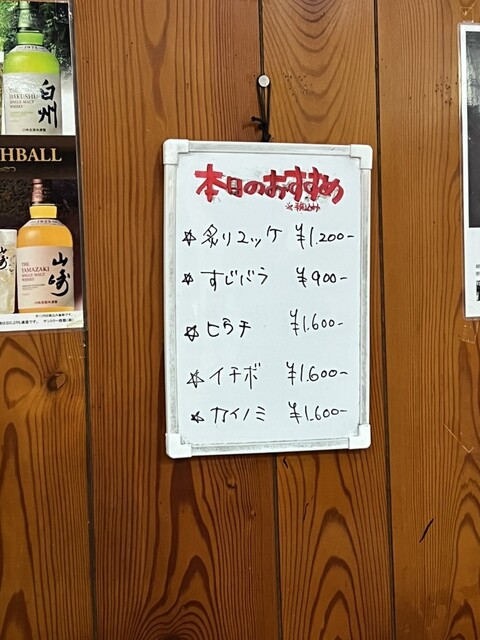 白州
THE
HAKUSHU
SINGLE MALT
WHISKY
HBALL
山崎
THE
YAMAZAKI
SINGLE MALT
WHISKY
本日のおすすめ
※税込み
☆炙りユッケ ¥1.200-
☆すじバラ ¥900-
☆ヒウチ ¥1.600-
☆イチボ ¥1.600-
☆カイノミ ¥1.600-